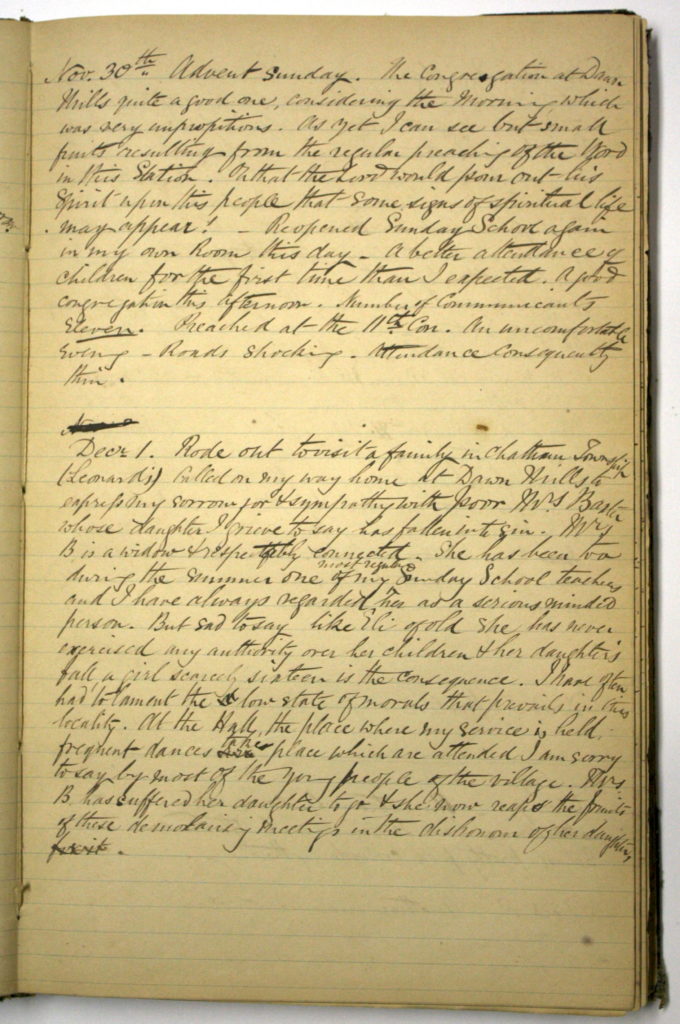 Nov. 30th Advent Sunday. The Congregation at Dawn
Mills quite a good one, considering the Morning which
was very unpropitious. As yet I can see but small
fruits resulting from the regular preaching of the Word
in this Station. Oh that the Lord would pour out his
Spirit upon this people that some signs of spiritual life
may appear! - Reopened Sunday School again
in my own Room this day - A better attendance of
children for the first time than I expected. A good
congregation this afternoon. Number of Communicants
Eleven. Preached at the 11th Con. An uncomfortable
Evening - Roads shocking. Attendance Consequently
thin.
Decr 1. Rode out to visit a family in Chatham Township
(Leonards) Called on my way home at Dawn Mills to
express my sorrow for & sympathy with poor Mrs
whose daughter I grieve to say has fallen into sin. Mrs
B is a widow & respectably connected. She has been too
during the summer one of my most regular Sunday School teachers
and I have always regarded her as a serious minded
person. But sad to say like Eli of old she has never
exercised any authority over her children & her daughter's
fall, a girl scarcely sixteen is the consequence. I have often
had to lament the low state of morals that prevails in this
locality. At the Hall, the place where my service is held,
frequent dances take place which are attended I am sorry
to say by most of the young people of the village. Mrs.
B. has suffered her daughter to go & she now reaps the fruits
of these demoralising meetings in the dishonour of her daughter